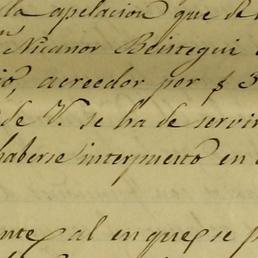 la apelacion que de
n Nicanor Beistegui
io, acreedor por $ 3
de V. se ha de servir
haberse interpuesto en
nte al en que se p